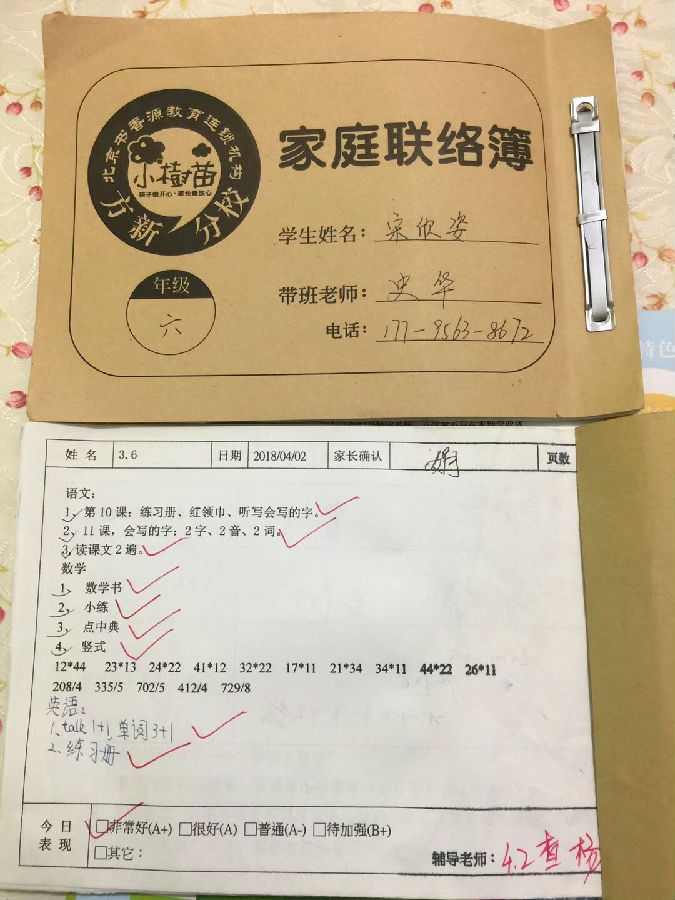 北京书香源教育连锁机构
小樹苗
孩子很开心·家长很放心
方新 分校
家庭联络簿
学生姓名：宋欣姿
带班老师：史华
电话：177-9563-8672
年级
六
特色
姓名 3.6 日期 2018/04/02 家长确认 页数
语文：
1、第10课：练习册、红领巾、听写会写的字。
2、11课，会写的字：2字、2音、2词。
3、读课文2遍。
数学
1、 数学书
2、 小练
3、 点中典
4、 竖式
12*44 23*13 24*22 41*12 32*22 17*11 21*34 34*11 44*22 26*11
208/4 335/5 702/5 412/4 729/8
英语：
1、talk 1+1，单词3+1
2、练习册
今日表现 □非常好(A+) □很好(A) □普通(A-) □待加强(B+)
□其它：
辅导老师：4.2查 杨